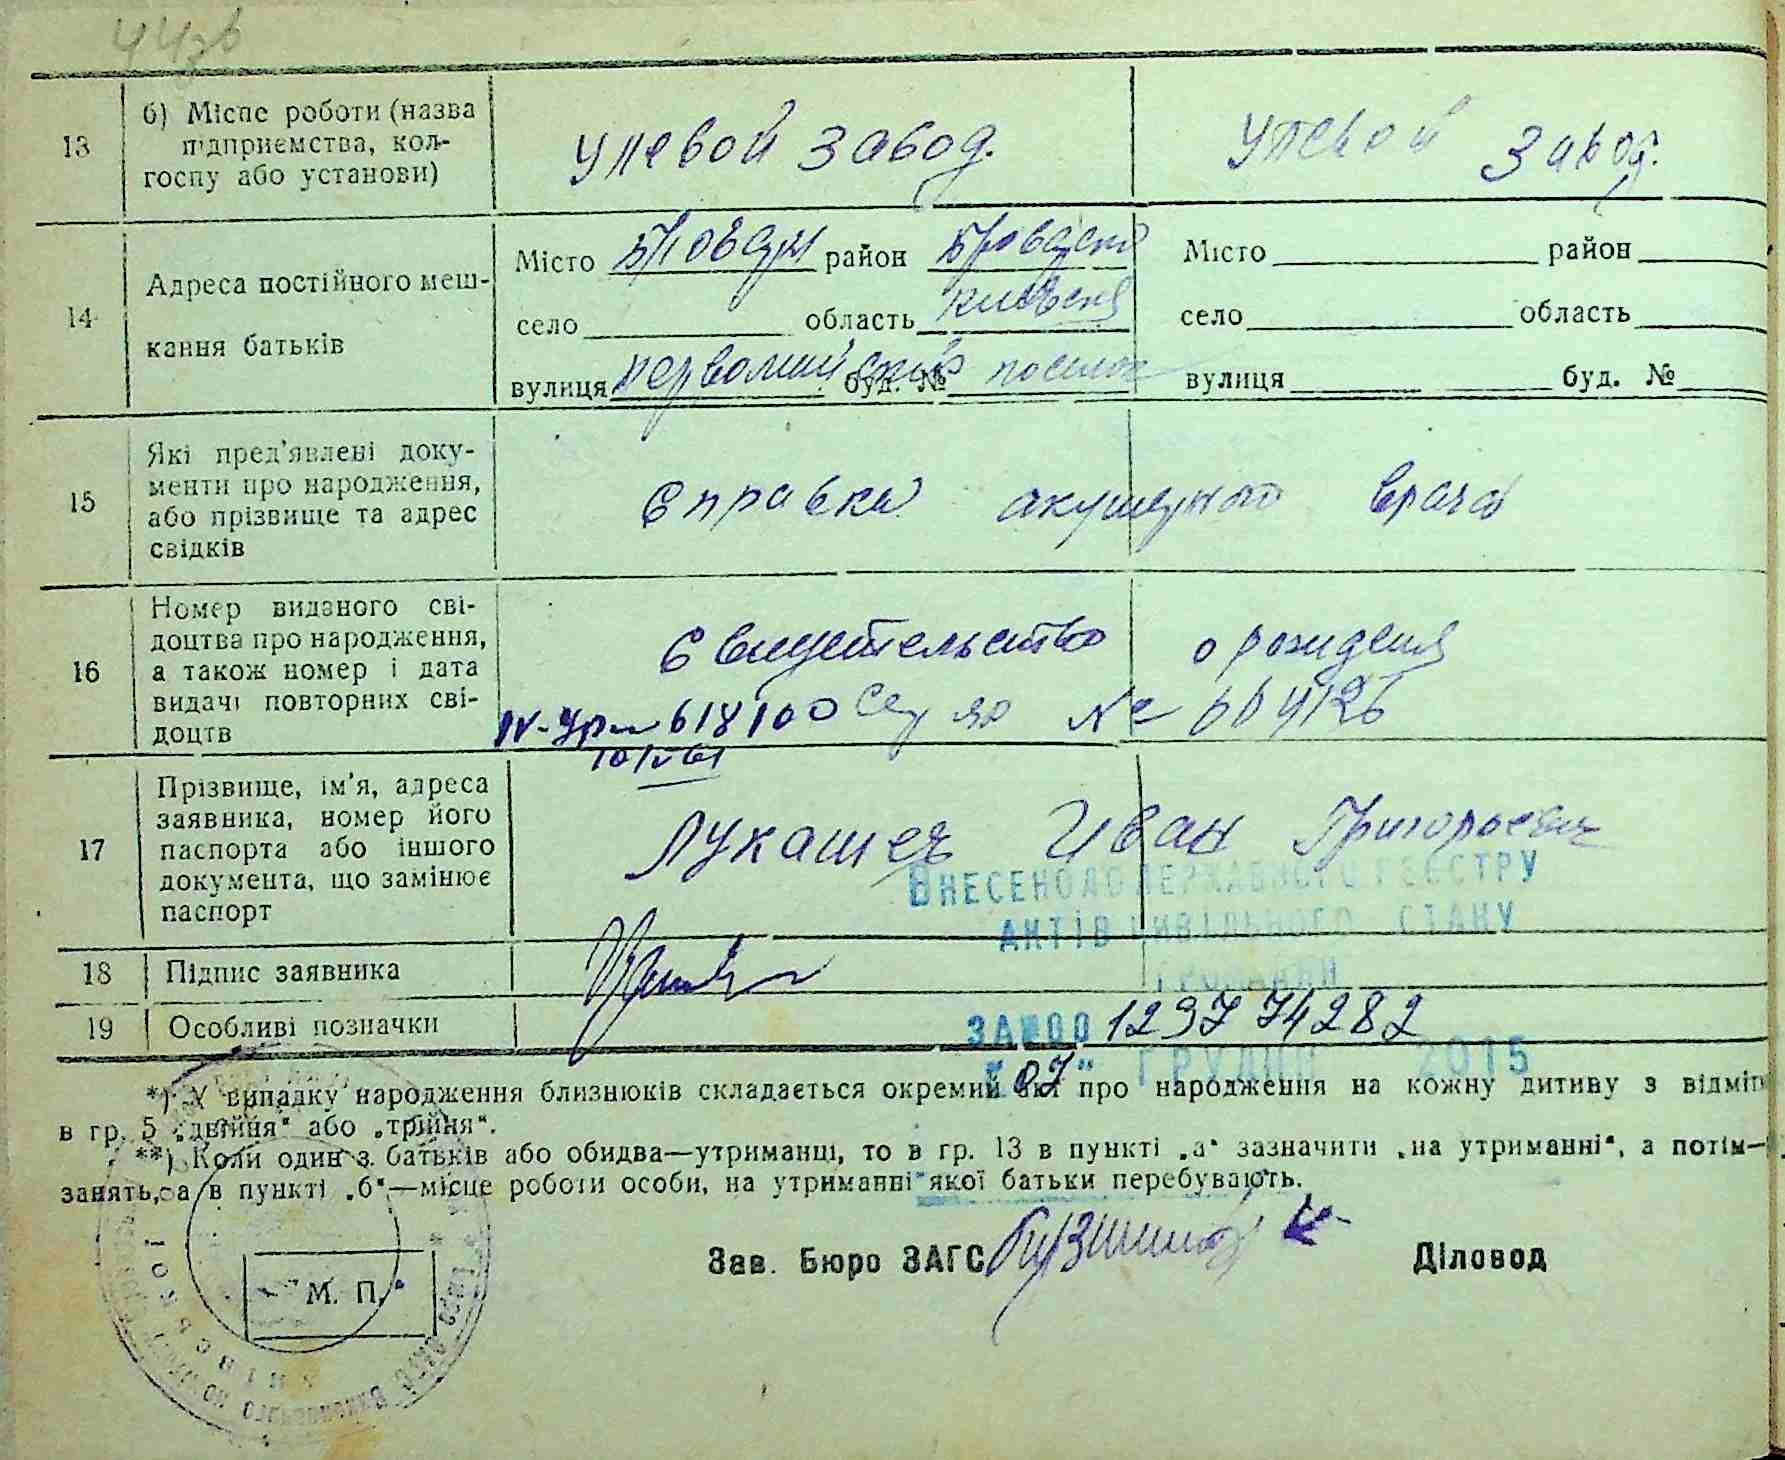 13
б) Місце роботи (назва
підприємства, кол-
госпу або установи)
Улевой завод.
Улевой завод.
14
Адреса постійного меш-
кання батьків
Місто Бровари район Бровдско
село область Киевская
вулиця Первомайский буд. № поселок
Місто район
село область
вулиця буд. №
15
Які пред'явлені доку-
менти про народження,
або прізвище та адрес
свідків
Справка акушерного врача
16
Номер виданого сві-
доцтва про народження,
а також номер і дата
видачі повторних сві-
доцтв
Свидетельство о рождения
618100 №
17
Прізвище, ім'я, адреса
заявника, номер його
паспорта або іншого
документа, що замінює
паспорт
Лукашец Иван Григорьевич
Внесено до Державного реєстру
актів цивільного стану
громадян
18
Підпис заявника
19
Особливі позначки
за №00 1297 74282
"07" грудня 2015
*) У випадку народження близнюків складається окремий акт про народження на кожну дитину з відміт
в гр. 5 „двійня“ або „трійня“.
**) Коли один з батьків або обидва—утриманці, то в гр. 13 в пункті „а“ зазначити „на утриманні“, а потім—
занять, а в пункті „б“—місце роботи особи, на утриманні якої батьки перебувають.
Зав. Бюро ЗАГС
Діловод
М. П.